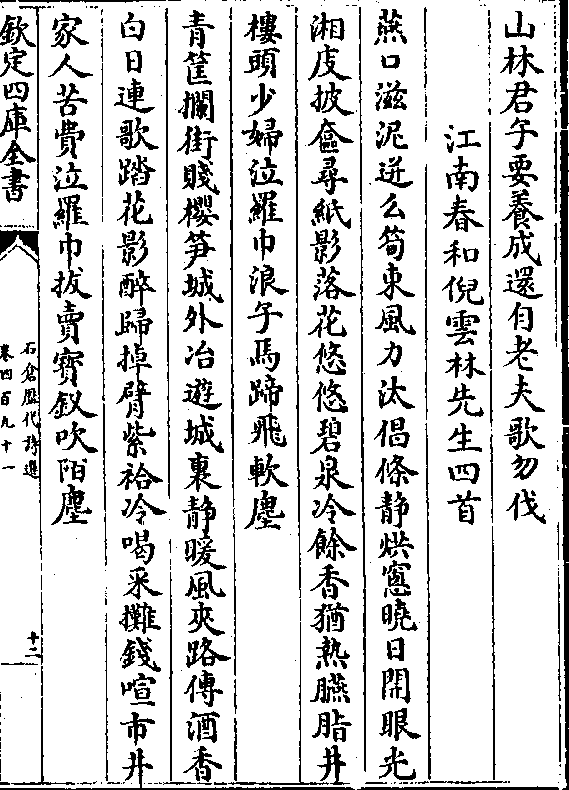 山林君子要養成還自老夫歌勿伐
江南春和倪雲林先生四首
燕口滋泥迸么筍東風力汰倡條靜烘窻曉日開眼光
湘皮披奩尋紙影落花悠悠碧泉冷餘香猶熟臙脂井
樓頭少婦泣羅巾浪子馬蹄飛軟塵
青筐攔街賤櫻笋城外冶遊城裏靜暖風夾路傳酒香
白日連歌踏花影醉歸掉臂紫袷冷喝采攤錢喧市井
家人苦費泣羅巾拔賣寶釵吹陌塵
欽定四庫全書
石倉歷代詩選
卷四百九十一
十二